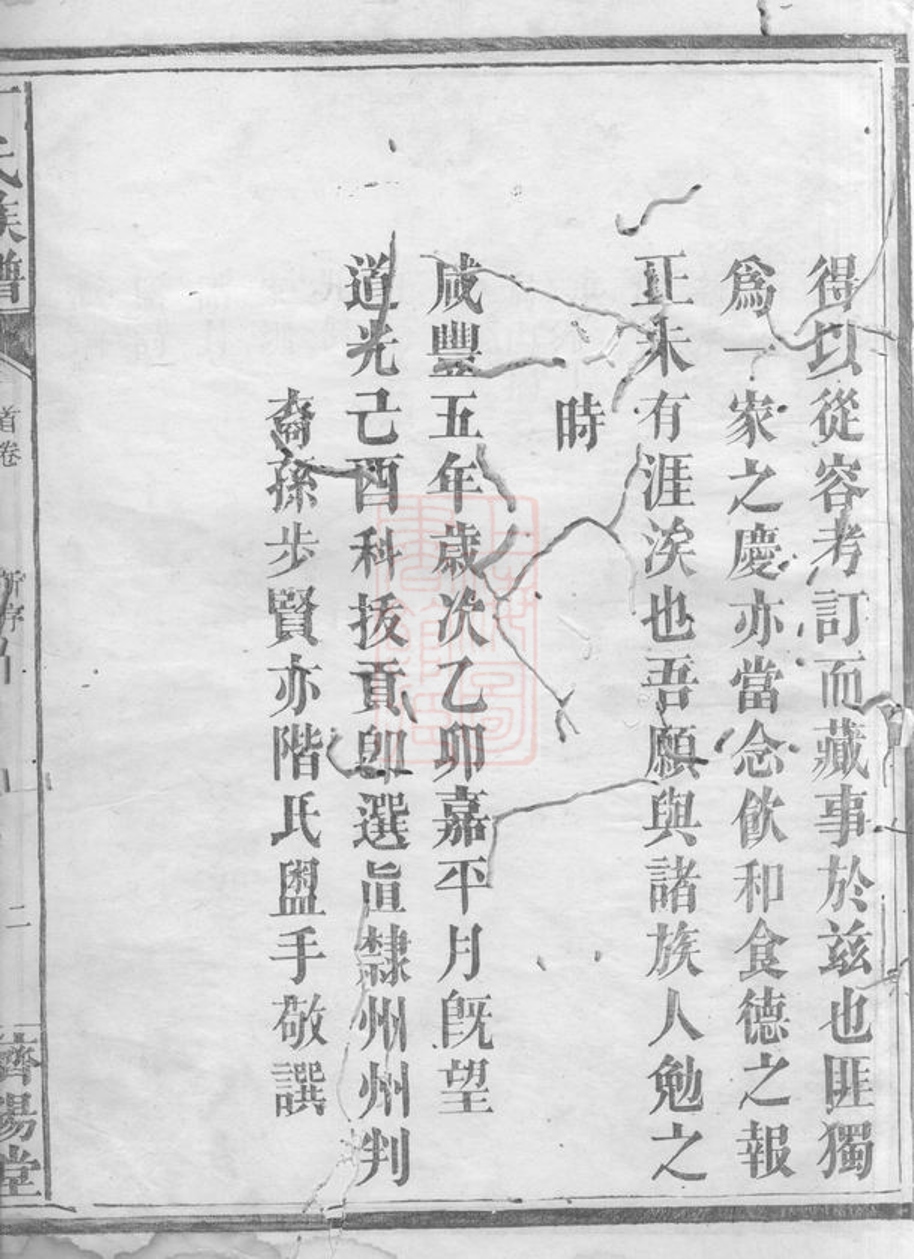 得以從容考訂而藏事於兹也匪獨
爲一家之慶亦當念飲和食德之報
正未有涯涘也吾願與諸族人勉之
時
咸豐五年歲次乙卯嘉平月既望
道光己酉科拔貢卽選直隸州州判
裔孫步賢亦階氏盥手敬譔
氏族譜
首卷
新序
二
濟陽堂